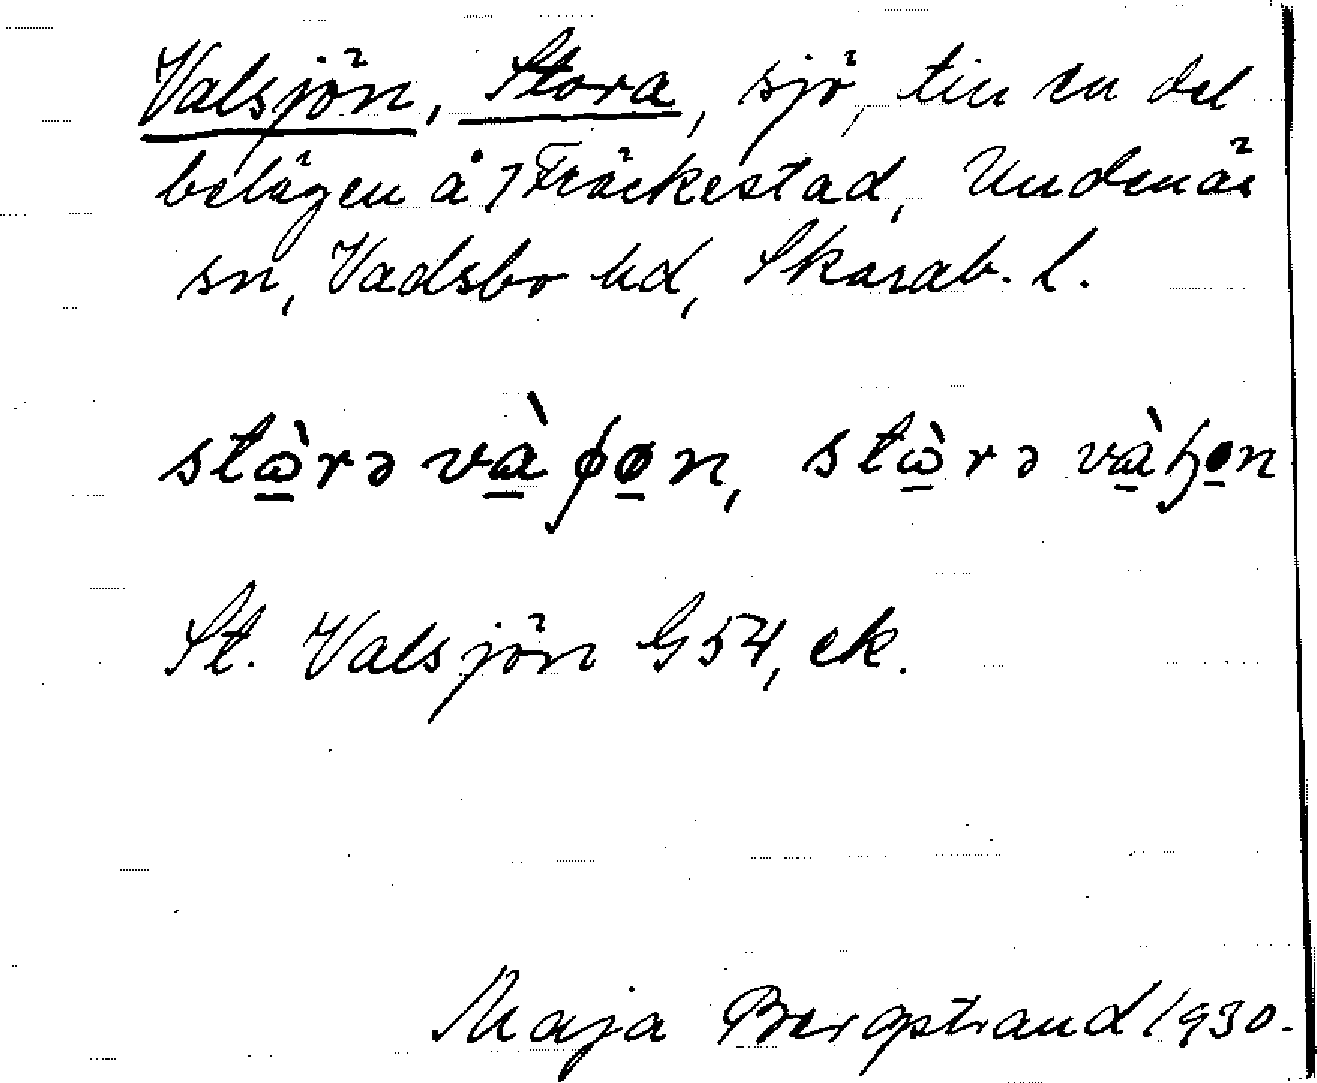 Valsjön, Stora, sjö, till en del
belägen å 7 Fräckestad, Undenäs
sn, Vadsbo hd, Skarab. l.
stὼ̱rə và̱ϕø̱n, stὼ̱rə và̱ɧø̱n
St. Valsjön G 54, ek.
Maja Bergstrand 1930.